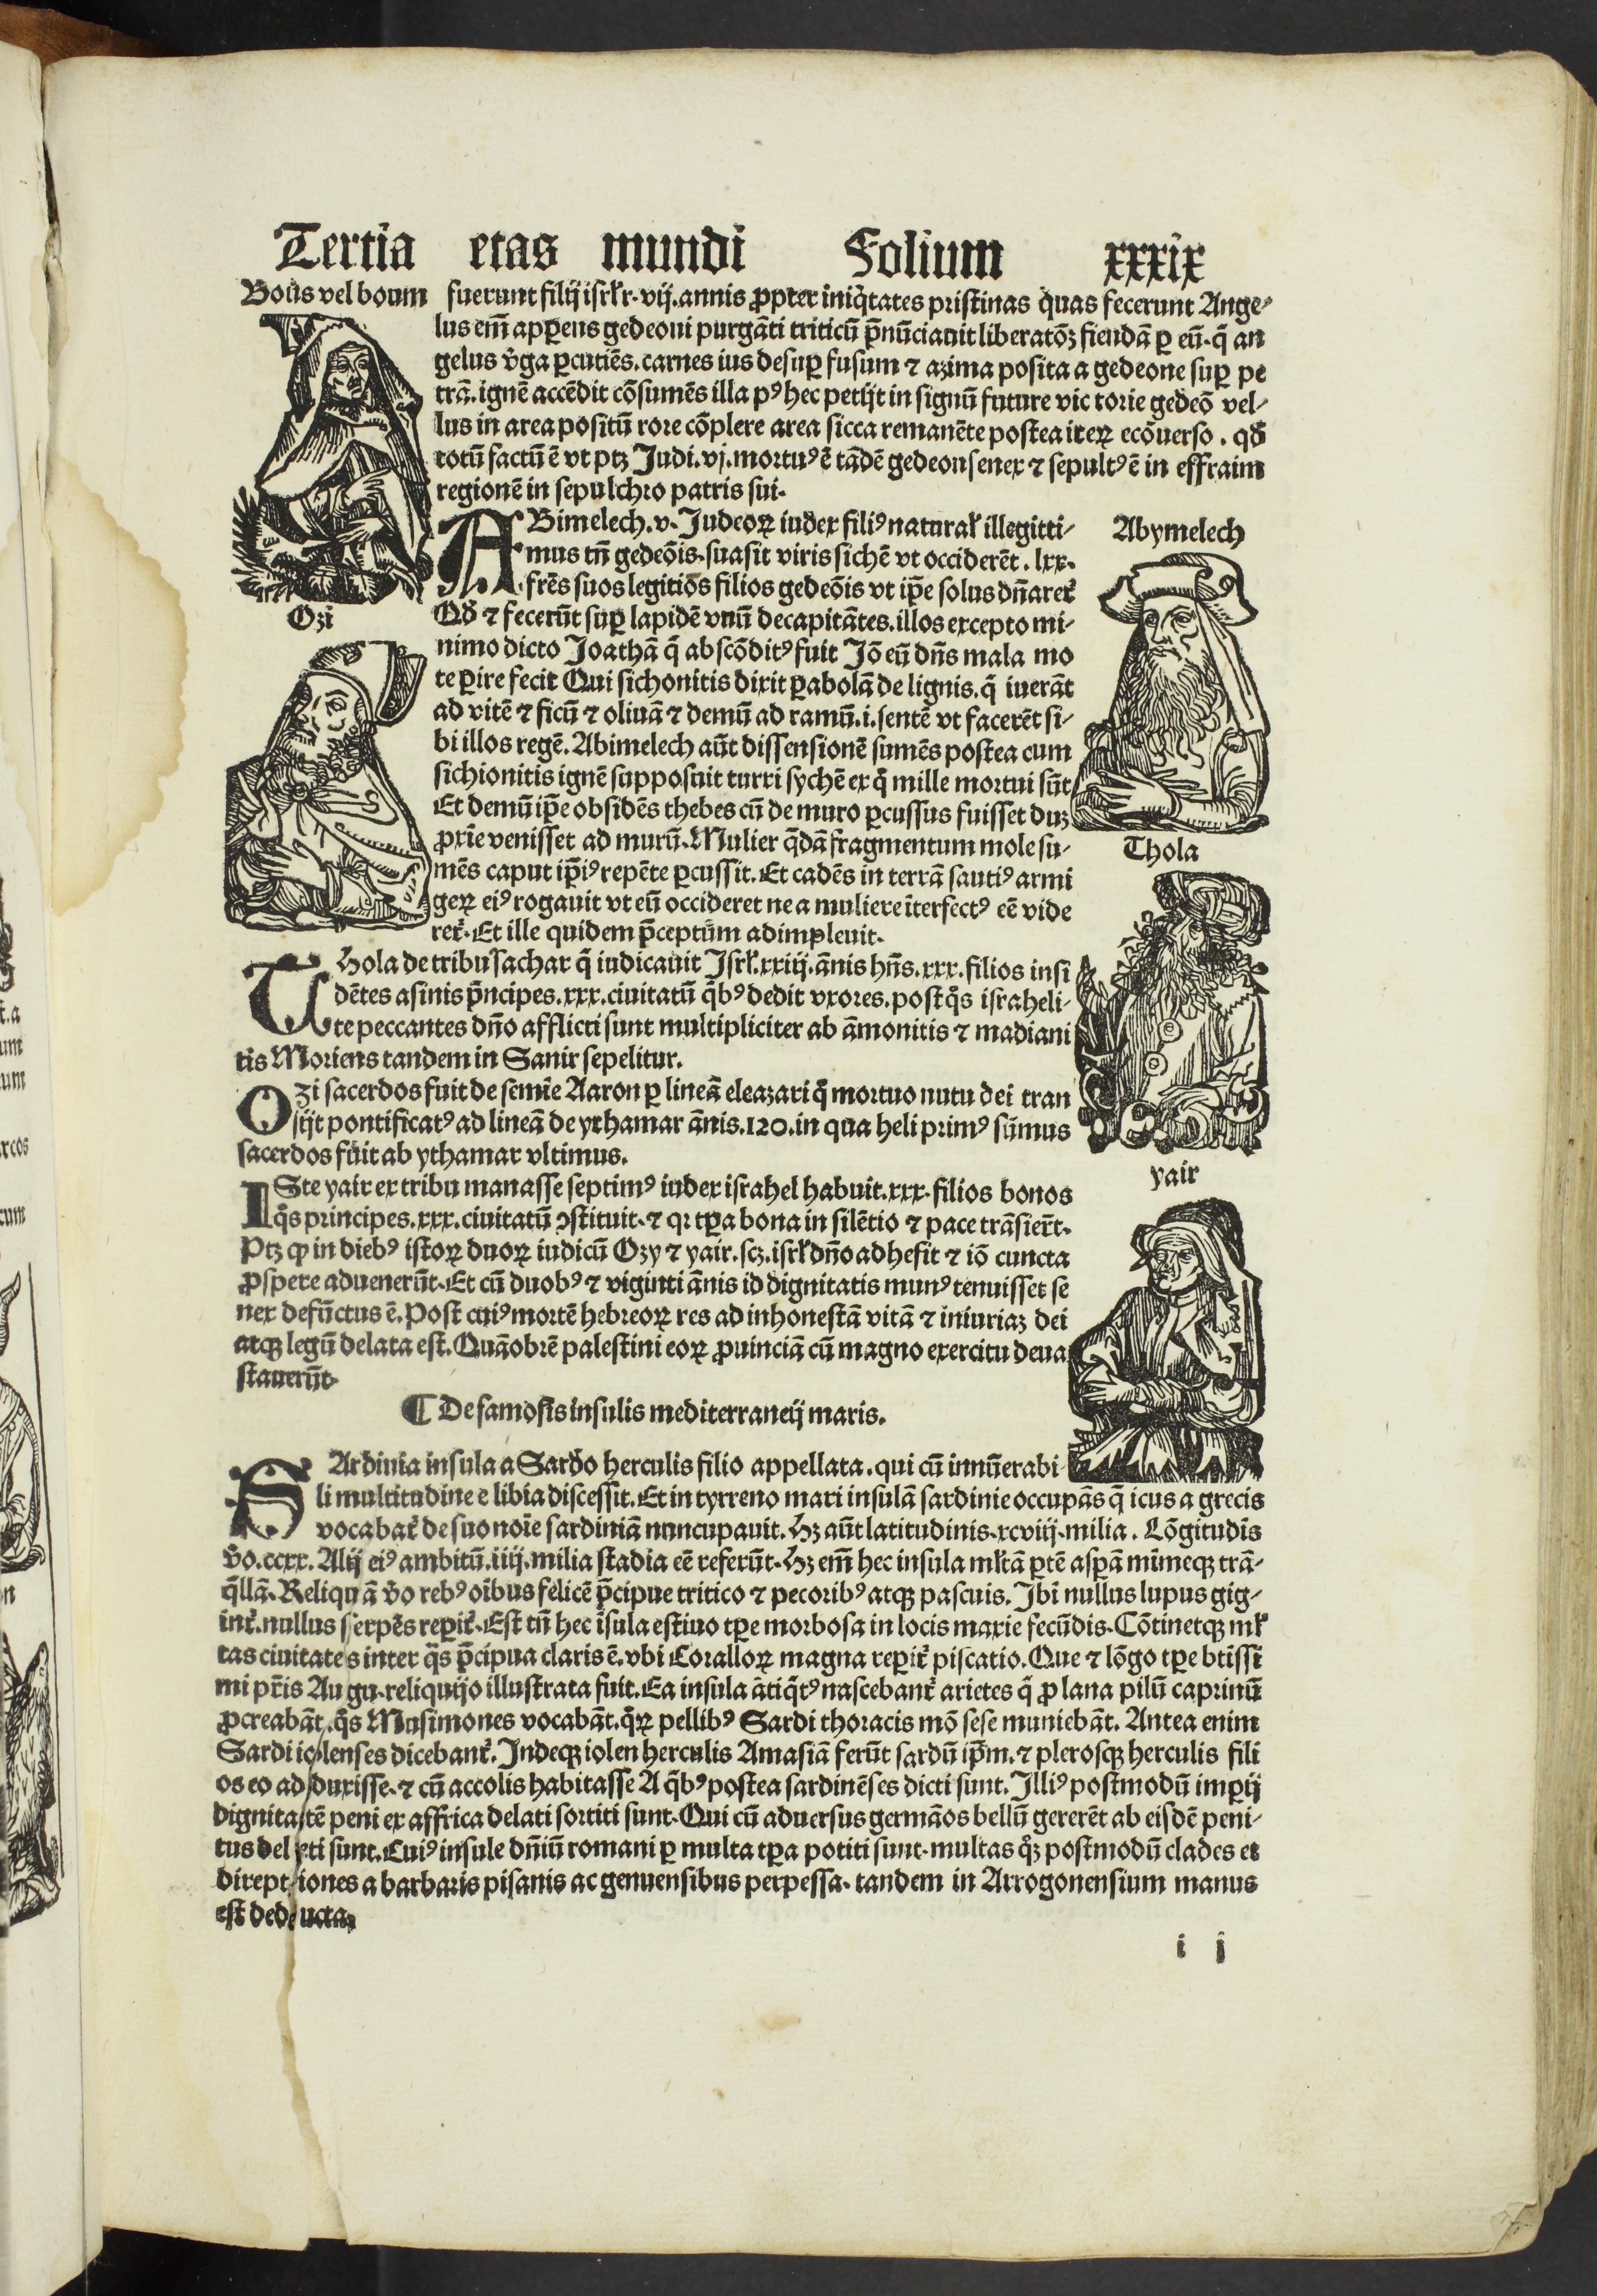 Tertia etas mundi Folium xxxix
Boūs vel boum
fuerunt filij isrl'r. vij. annis ꝓpter iniq̇tates pristinas quas fecerunt Ange-
lus em̄ apꝑens gedeoni purgāti triticū p̄nūciauit liberatōꝫ fiendā ꝑ eū. q̇ an
gelus v̇ga ꝑcutiēs. carnes ius desuꝑ fusum ⁊ azima posita a gedeone suꝑ pe
trā. ignē accēdit cōsumēs illa pꝰ hec petijt in signū future vic torie gedeō vel-
lus in area positū rore cōplere area sicca remanēte postea iteꝝ ecōuerso. qď
totū factū ē vt ptꝫ Judi. vj. mortuꝰ ē tādē gedeon senex ⁊ sepultꝰ ē in effraim
regionē in sepulchro patris sui.
ABimelech. v. Judeoꝝ iudex filiꝰ natural' illegitti-
mus tn̄ gedeōis. suasit viris sichē vt occiderēt. lxx.
fr̄es suos legitiōs filios gedeōis vt ip̄e solus dn̄aret'
Qď ⁊ fecerūt suꝑ lapidē vnū decapitātes. illos excepto mi-
nimo dicto Joathā q̇ abscōditꝰ fuit Jō eū dn̄s mala mo
te ꝑire fecit Qui sichonitis dixit ꝑabolā de lignis. q̄ iuerāt
ad vitē ⁊ ficū ⁊ oliuā ⁊ demū ad ramū. i. sentē vt facerēt si-
bi illos regē. Abimelech aūt dissensionē sumēs postea cum
sichionitis ignē supposuit turri sychē ex q̇ mille mortui sūt
Et demū ip̄e obsidēs thebes cū de muro ꝑcussus fuisset duꝫ
ꝓxīe venisset ad murū. Mulier q̄dā fragmentum mole su-
mēs caput ip̄iꝰ repēte ꝑcussit. Et cadēs in terrā sautiꝰ armi
geꝝ eiꝰ rogauit vt eū occideret ne a muliere īterfectꝰ eē vide
ret'. Et ille quidem p̄ceptum adimpleuit.
Abymelech
Ozi
Thola
THola de tribu sachar q̇ iudicauit Jsrl'. xxiij. ānis hn̄s. xxx. filios insi
dētes asinis p̄ncipes. xxx. ciuitatū q̇bꝰ dedit vxores. post q̄s israheli-
te peccantes dn̄o afflicti sunt multipliciter ab āmonitis ⁊ madiani
tis Moriens tandem in Sanir sepelitur.
OZi sacerdos fuit de semīe Aaron ꝑ lineā eleazari q̇ mortuo nutu dei tran
sijt pontificatꝰ ad lineā de ythamar ānis. 120. in qua heli primꝰ sūmus
sacerdos fuit ab ythamar vltimus.
yair
ISte yair ex tribu manasse septimꝰ iudex israhel habuit. xxx. filios bonos
q̇s principes. xxx. ciuitatū ꝯstituit. ⁊ qꝛ tꝑa bona in silētio ⁊ pace trāsier̄t.
Ptꝫ ꝙ in diebꝰ istoꝝ duoꝝ iudicū Ozy ⁊ yair. scꝫ. isrl' dn̄o adhesit ⁊ iō cuncta
ꝓspere aduenerūt. Et cū duobꝰ ⁊ viginti ānis id dignitatis munꝰ tenuisset se
nex defūctus ē. Post cuiꝰ mortē hebreoꝝ res ad inhonestā vitā ⁊ iniuriaꝫ dei
atqꝫ legū delata est. Quāobrē palestini eoꝝ ꝓuinciā cū magno exercitu deua
stauerūt.
¶ De famosis insulis mediterraneij maris.
SArdinia insula a Sardo herculis filio appellata. qui cū innūerabi
li multitudine e libia discessit. Et in tyrreno mari insulā sardinie occupās q̄ icus a grecis
vocabat' de suo noīe sardiniā nuncupauit. Hꝫ aūt latitudinis. xcviij. milia. Lōgitudīs
v̇o. ccxx. Alij eiꝰ ambitū. iiij. milia stadia eē referūt. Hꝫ em̄ hec insula ml'tā ꝑtē asꝑā mīmeqꝫ trā-
q̇llā. Reliquā v̇o rebꝰ oībus felicē p̄cipue tritico ⁊ pecoribꝰ atqꝫ pascuis. Jbi nullus lupus gig-
int'. nullus serpēs reꝑit'. Est tn̄ hec īsula estiuo tꝑe morbosa in locis maxīe fecūdis. Cōtinetqꝫ ml'
tas ciuitates inter q̄s p̄cipua claris ē. vbi Coralloꝝ magna reꝑit' piscatio. Que ⁊ lōgo tꝑe btissi
mi pr̄is Augu. reliquijo illustrata fuit. Ea insula ātiq̇tꝰ nascebant' arietes q̇ ꝓ lana pilū caprinū
ꝓcreabāt. q̇s Musimones vocabāt. q̇ꝝ pellibꝰ Sardi thoracis mō sese muniebāt. Antea enim
Sardi iolenses dicebant'. Indeqꝫ iolen herculis Amasiā ferūt sardū ip̄m. ⁊ plerosqꝫ herculis fili
os eo adduxisse. ⁊ cū accolis habitasse A q̇bꝰ postea sardinēses dicti sunt. Jlliꝰ postmodū imꝑij
dignitatē peni ex affrica delati sortiti sunt. Qui cū aduersus germāos bellū gererēt ab eisdē peni-
tus deleti sunt. Cuiꝰ insule dn̄iū romani ꝑ multa tꝑa potiti sunt. multas q̄ꝫ postmodū clades et
direptiones a barbaris pisanis ac genuensibus perpessa. tandem in Arrogonensium manus
est deducta.
i j